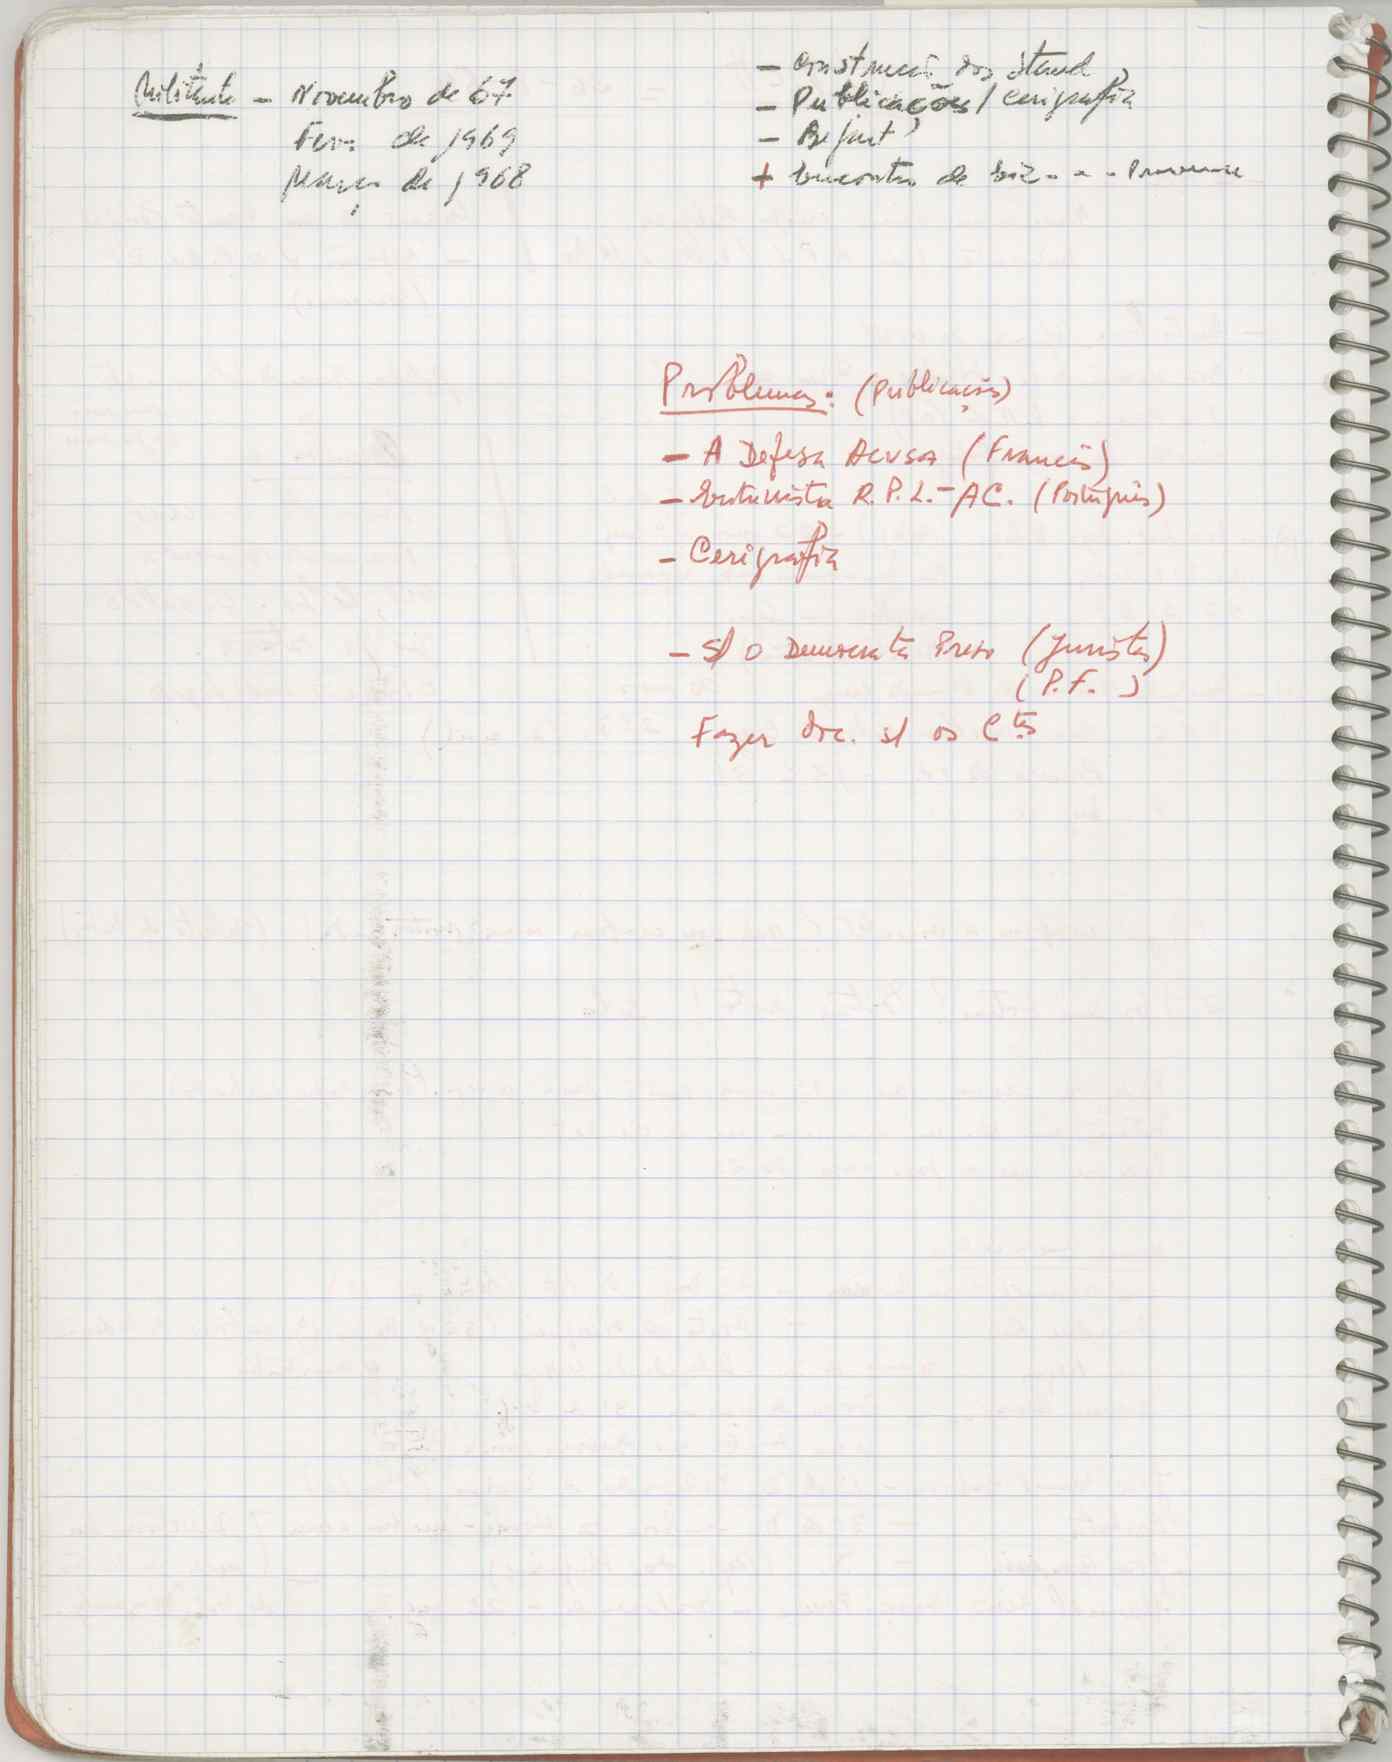 Militante - Novembro de 67
Fev. de 1969
Março de 1968
- Construção dos stand
- Publicações / Cerigrafia
+ Encontro de
Problemas: (Publicações)
- A Defesa Acusa (Francês)
- Entrevista R.P.L. - AC. (Português)
- Cerigrafia
- s/ o Democrata Preso (Juristas)
(P.F.)
Fazer doc. s/ os Ctes